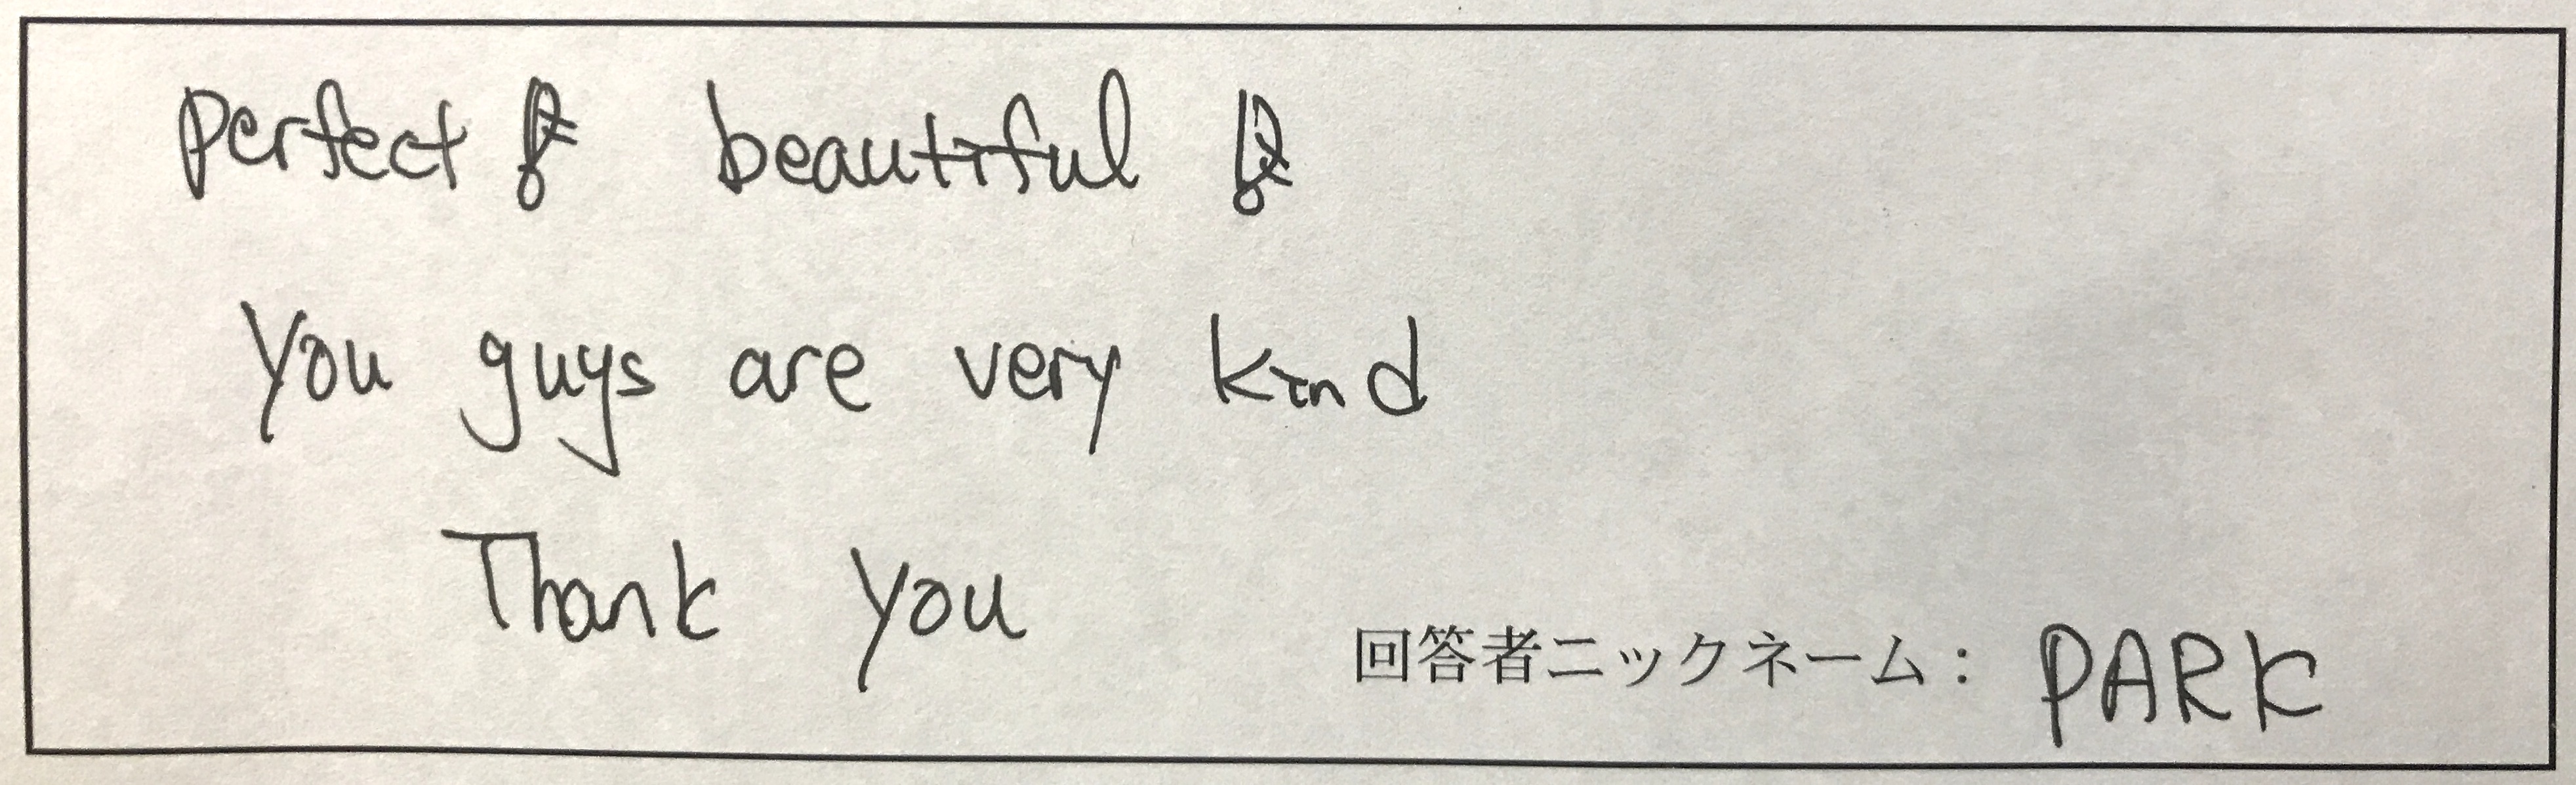 perfect! beautiful!
You guys are very kind
Thank you
回答者ニックネーム： PARK